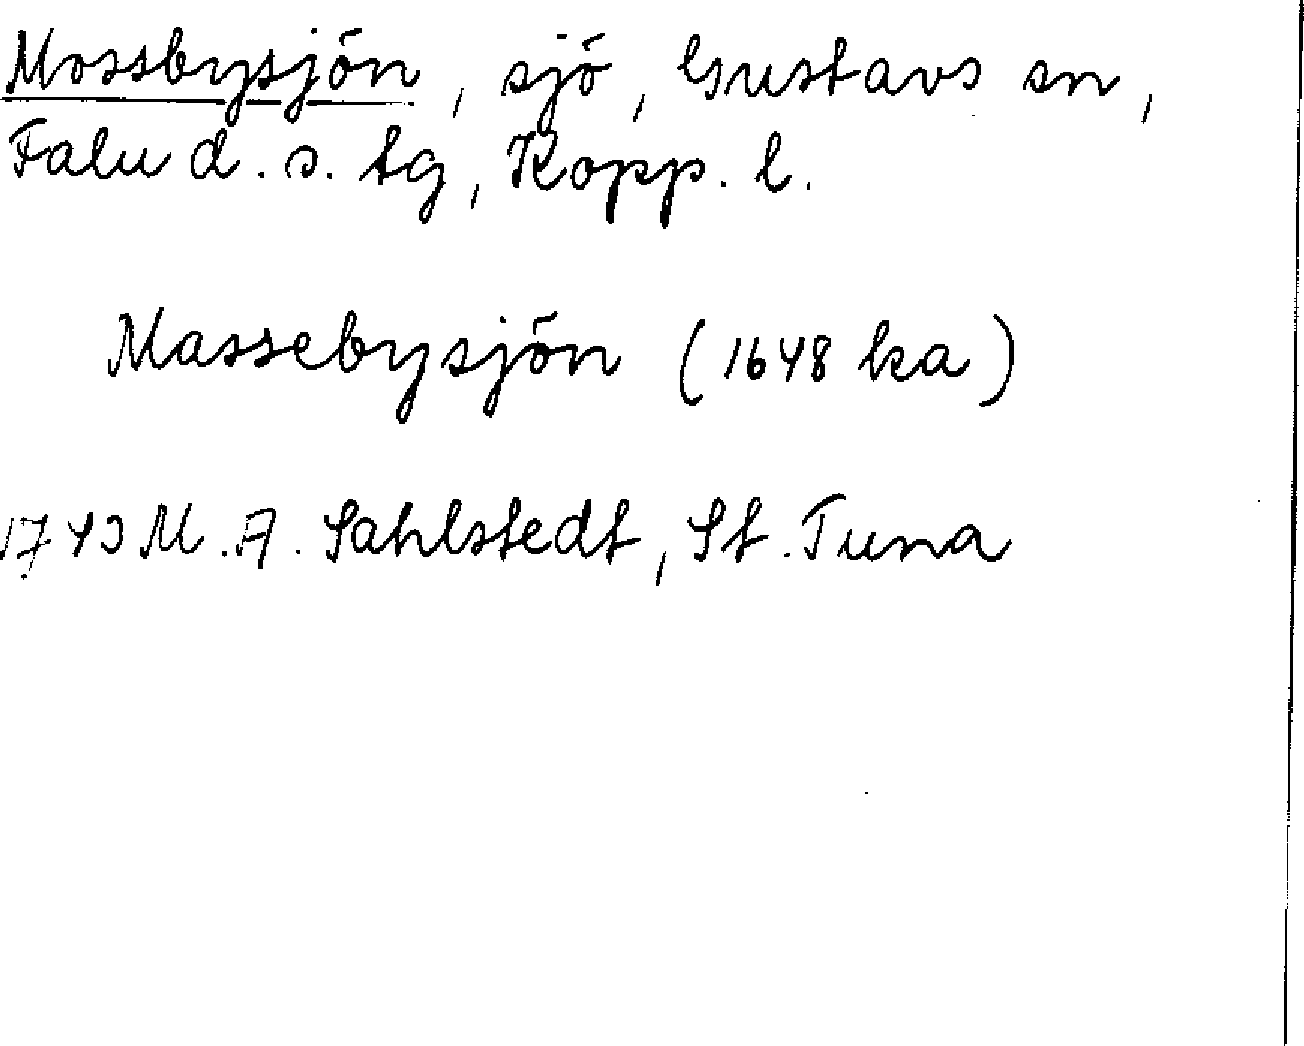 Mossbysjön, sjö, Gustavs sn,
Falu d. s. tg, Kopp. l.
Massebysjön (1648 ka)
1743 M. A. Sahlstedt, St. Tuna